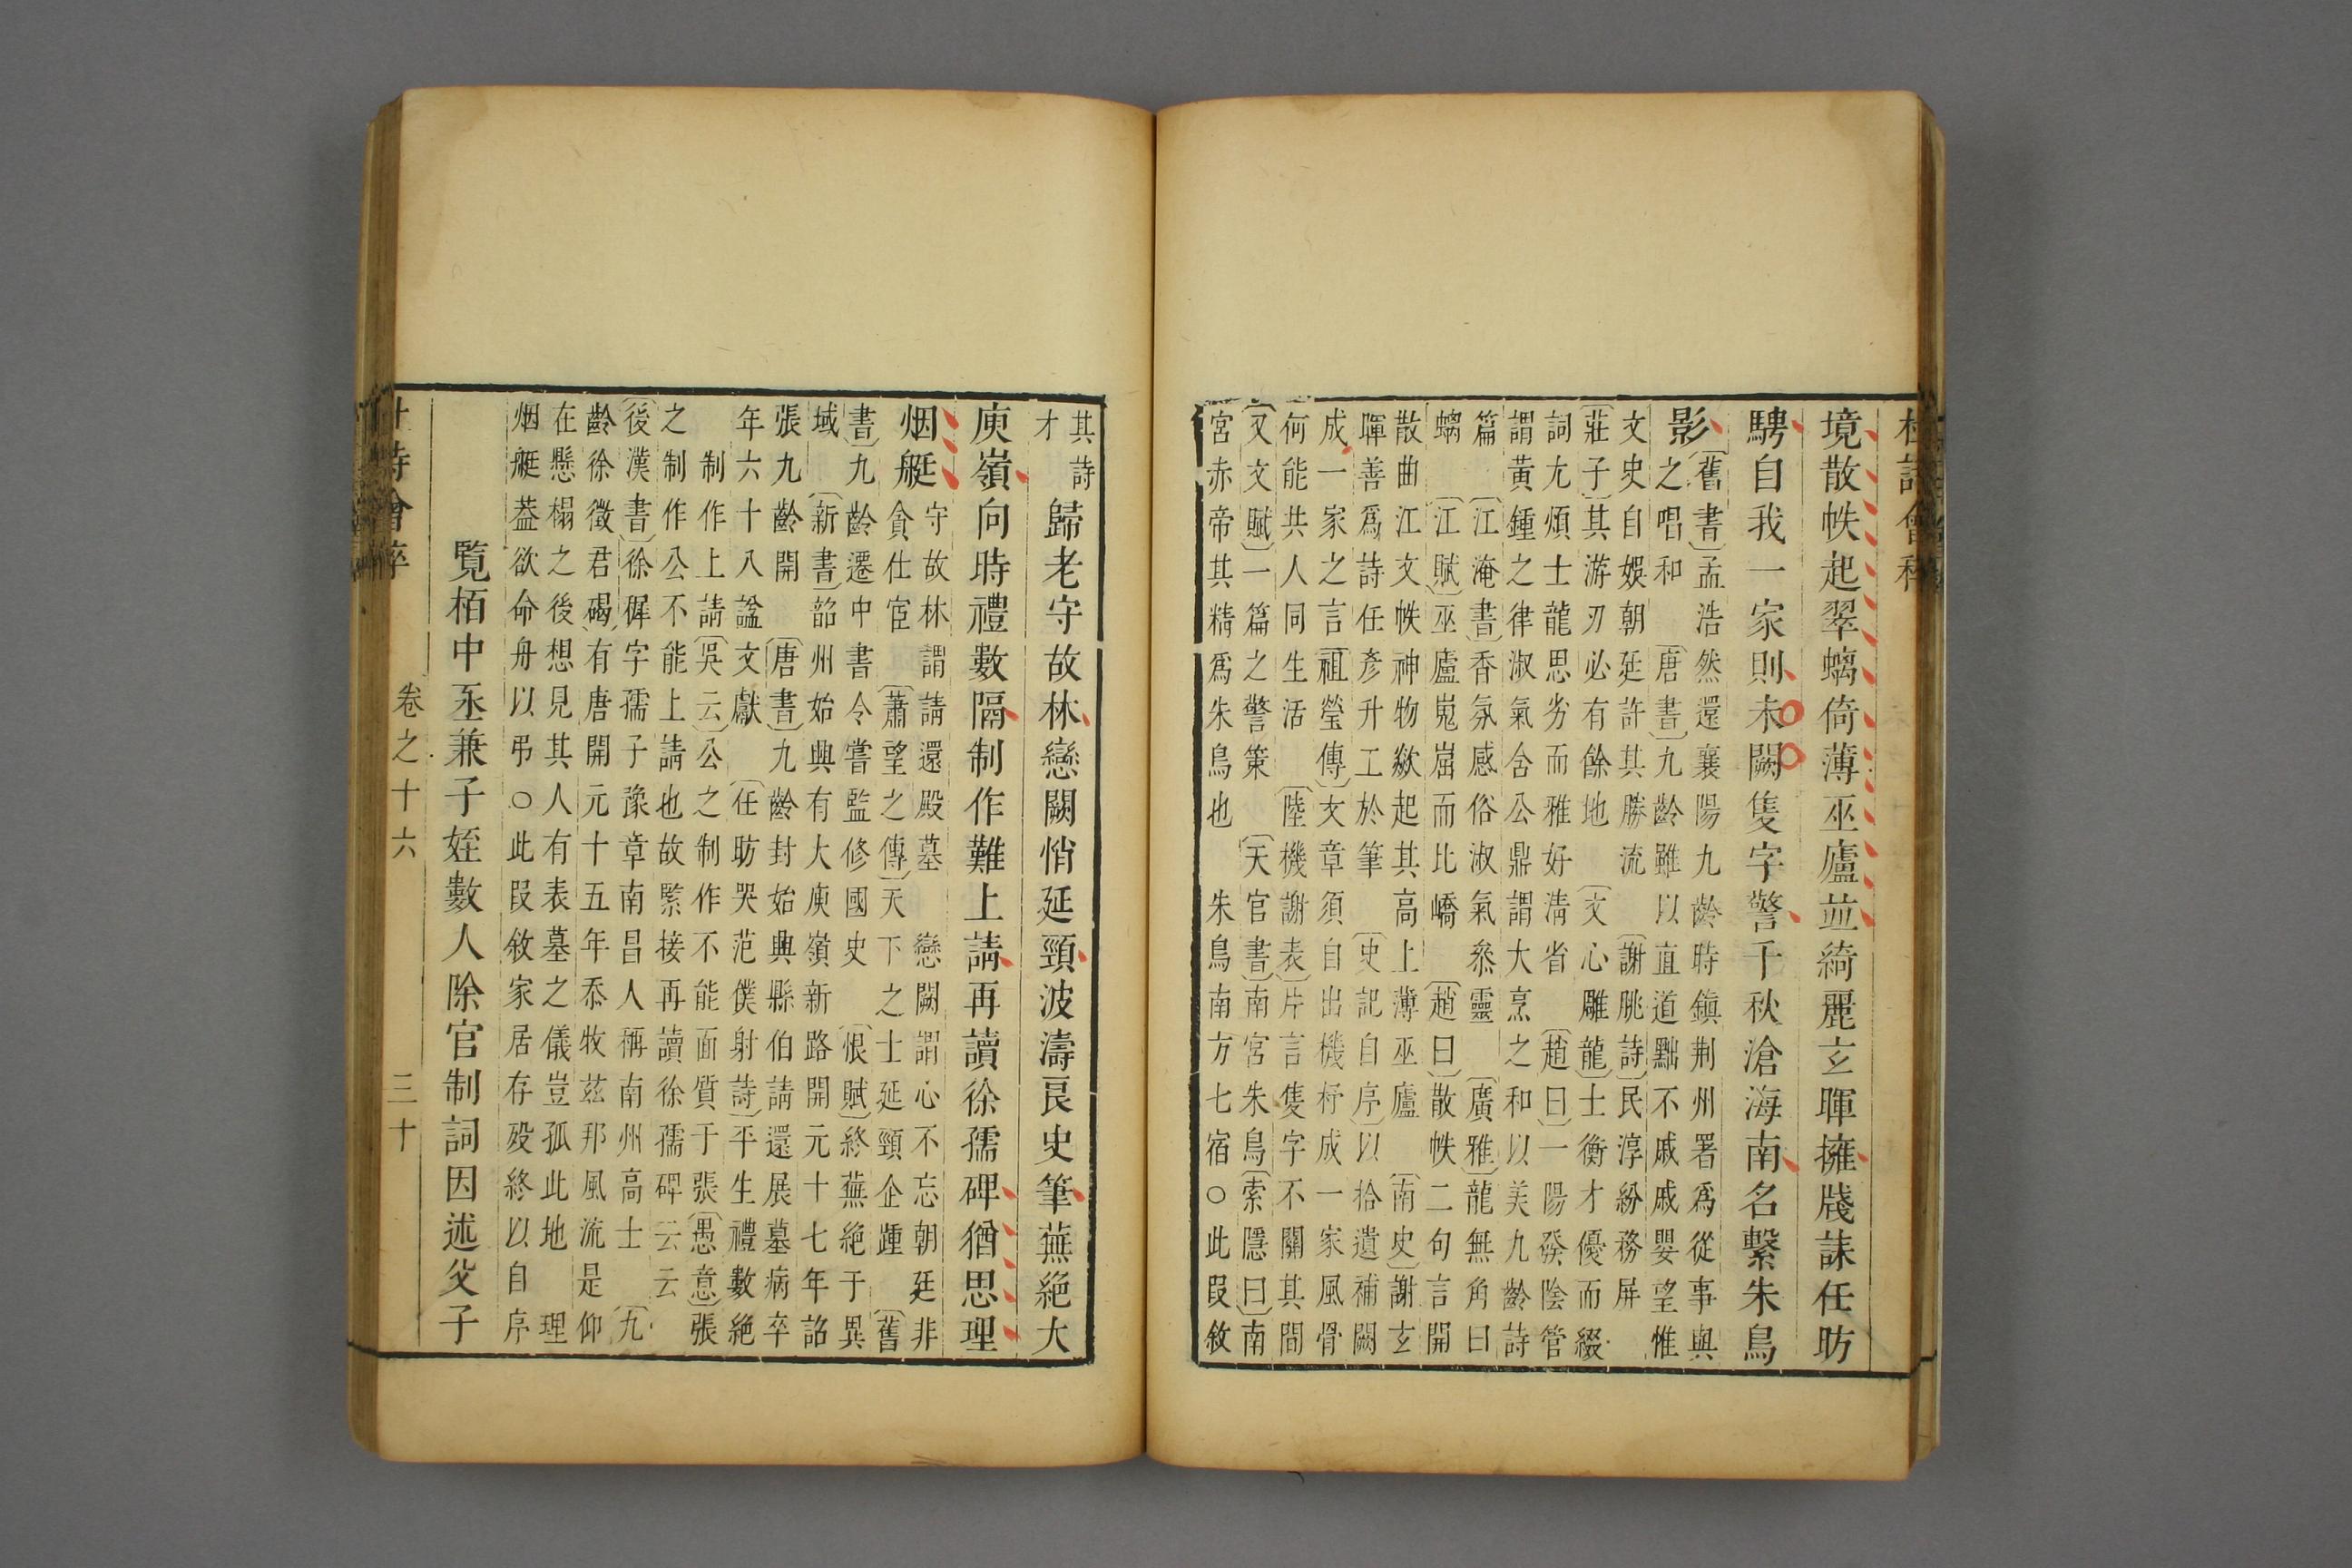 杜詩會稡
境散帙起翠螭倚薄巫廬並綺麗玄暉擁牋誄任昉
騁自我一家則未闕隻字警千秋滄海南名繫朱鳥
影
〔舊書〕孟浩然還襄陽九齡時鎮荆州署爲從事與
之唱和 〔唐書〕九齡雖以直道黜不戚戚嬰望惟
文史自娛朝廷許其勝流 〔謝脁詩〕民淳紛務屏
〔莊子〕其游刃必有餘地 〔文心雕龍〕士衡才優而綴
詞尤煩士龍思劣而雅好淸省 〔趙曰〕一陽發陰管
謂黃鍾之律淑氣含公鼎謂大烹之和以美九齡詩
篇 〔江淹書〕香氛感俗淑氣叅靈 〔廣雅〕龍無角曰
螭 〔江賦〕巫廬嵬崫而比嶠 〔趙曰〕散帙二句言開
散曲江文帙神物歘起其高上薄巫廬 〔南史〕謝玄
暉善爲詩任彥升工於筆 〔史記自序〕以拾遺補闕
成一家之言〔祖瑩傳〕文章須自出機杼成一家風骨
何能共人同生活 〔陸機謝表〕片言隻字不關其間
〔又文賦〕一篇之警策 〔天官書〕南宮朱鳥〔索隱曰〕南
宮赤帝其精爲朱鳥也 朱鳥南方七宿○此叚敘
其詩
才
歸老守故林戀闕悄延頸波濤良史筆蕪絕大
庾嶺向時禮數隔制作難上請再讀徐孺碑猶思理
烟艇
守故林謂請還殿墓 戀闕謂心不忘朝廷非
貪仕宦 〔蕭望之傳〕天下之士延頸企踵 〔舊
書〕九齡遷中書令嘗監修國史 〔恨賦〕終蕪絕于異
域 〔新書〕韶州始興有大庾嶺新路開元十七年詔
張九齡開 〔唐書〕九齡封始興縣伯請還展墓病卒
年六十八諡文獻 〔任昉哭范僕射詩〕平生禮數絕
制作上請〔吳云〕公之制作不能面質于張〔愚意〕張
之制作公不能上請也故緊接再讀徐孺碑云云
〔後漢書〕徐穉字孺子豫章南昌人稱南州高士 〔九
齡徐徵君碣〕有唐開元十五年忝牧玆邦風流是仰
在懸榻之後想見其人有表墓之儀豈孤此地 理
烟艇葢欲命舟以弔○此叚敘家居存殁終以自序
覧栢中丞兼子姪數人除官制詞因述父子
杜詩會稡 卷之十六 三十